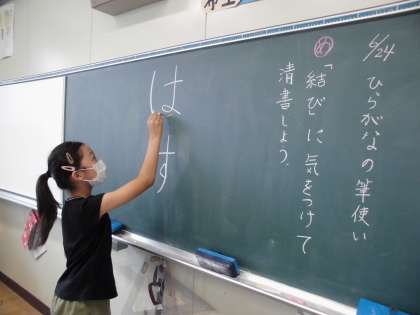 6/24 ひらがなの筆使い
め「結び」に気をつけて
清書しよう。
はす